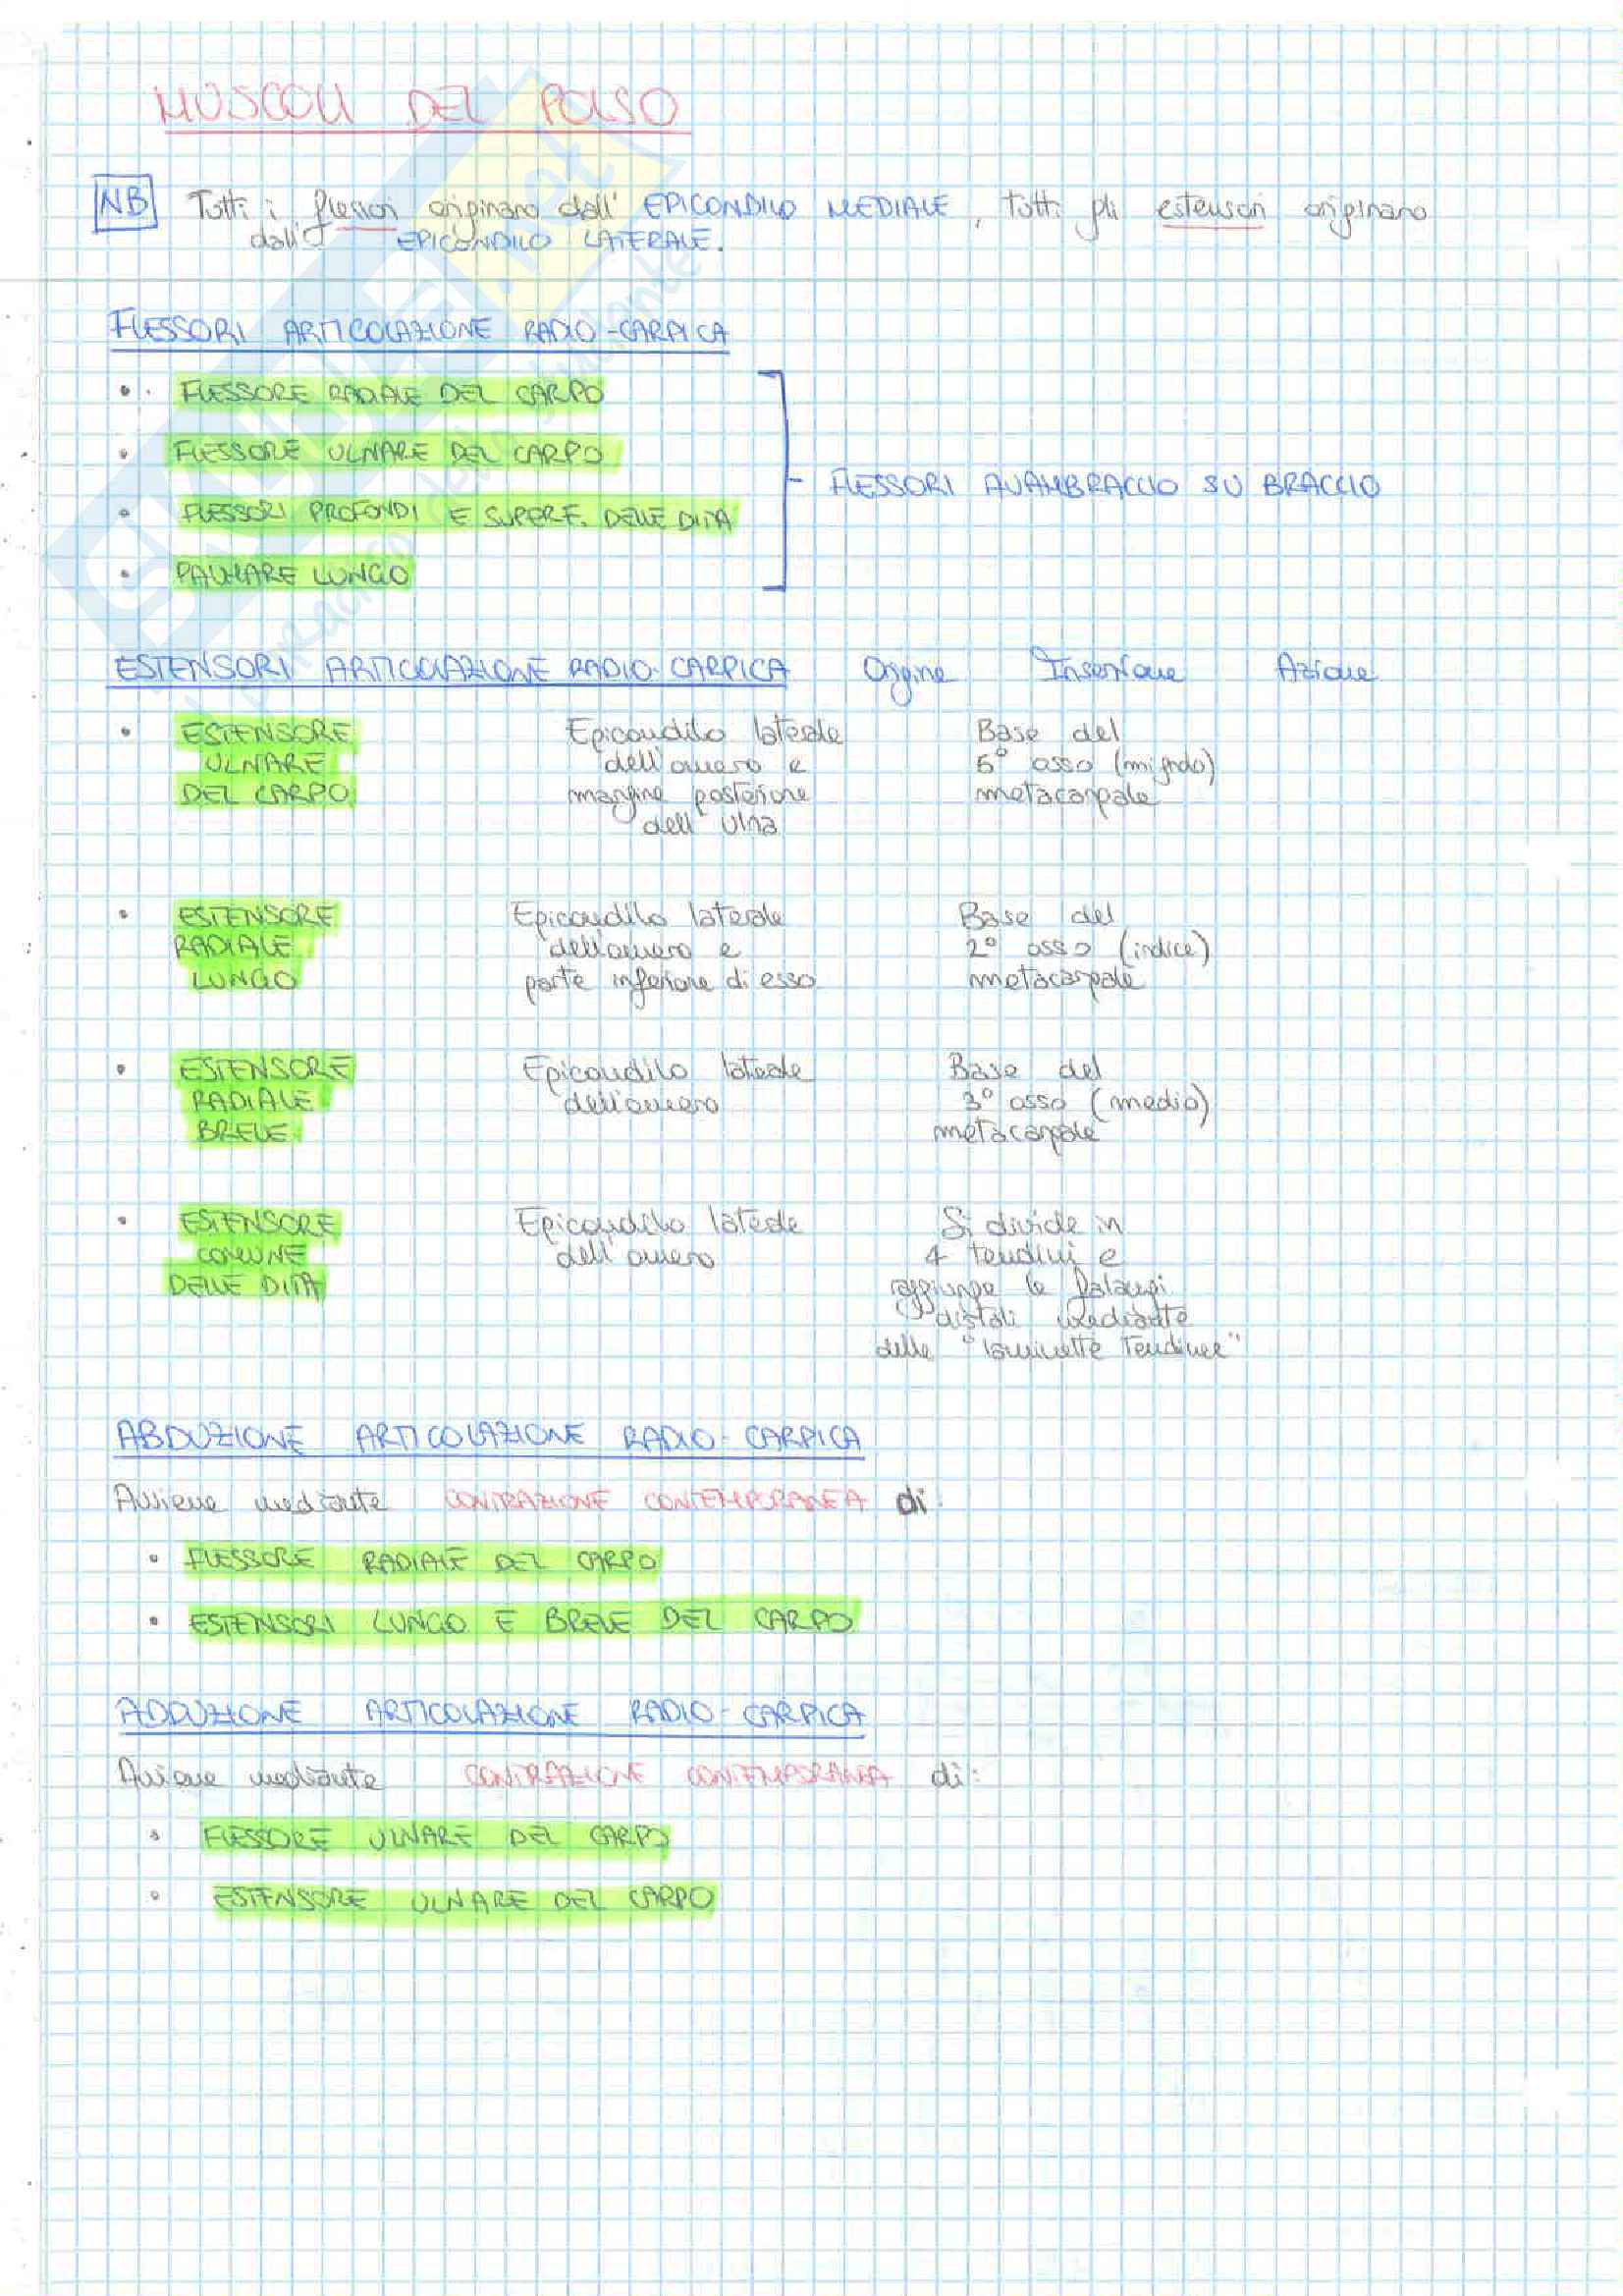 MUSCOLI DEL POLSO
NB Tutti i flessori originano dall' EPICONDILO MEDIALE, tutti gli estensori originano
dall' EPICONDILO LATERALE.
FLESSORI ARTICOLAZIONE RADIO-CARPICA
• FLESSORE RADIALE DEL CARPO
• FLESSORE ULNARE DEL CARPO
FLESSORI AVAMBRACCIO SU BRACCIO
• FLESSORI PROFONDI E SUPERF. DELLE DITA
• PALMARE LUNGO
ESTENSORI ARTICOLAZIONE RADIO-CARPICA Origine Inserzione Azione
• ESTENSORE Epicondilo laterale Base del
ULNARE dell'omero e 5° osso (mignolo)
DEL CARPO margine posteriore metacarpale
dell' ulna
• ESTENSORE Epicondilo laterale Base del
RADIALE dell'omero e 2° osso (indice)
LUNGO parte inferiore di esso metacarpale
• ESTENSORE Epicondilo laterale Base del
RADIALE dell'omero 3° osso (medio)
BREVE metacarpale
• ESTENSORE Epicondilo laterale Si divide in
COMUNE dell'omero 4 tendini e
DELLE DITA raggiunge le falangi
distali mediante
delle "laminette tendinee"
ABDUZIONE ARTICOLAZIONE RADIO-CARPICA
Avviene mediante CONTRAZIONE CONTEMPORANEA di:
• FLESSORE RADIALE DEL CARPO
• ESTENSORI LUNGO E BREVE DEL CARPO
ADDUZIONE ARTICOLAZIONE RADIO-CARPICA
Avviene mediante CONTRAZIONE CONTEMPORANEA di:
• FLESSORE ULNARE DEL CARPO
• ESTENSORE ULNARE DEL CARPO